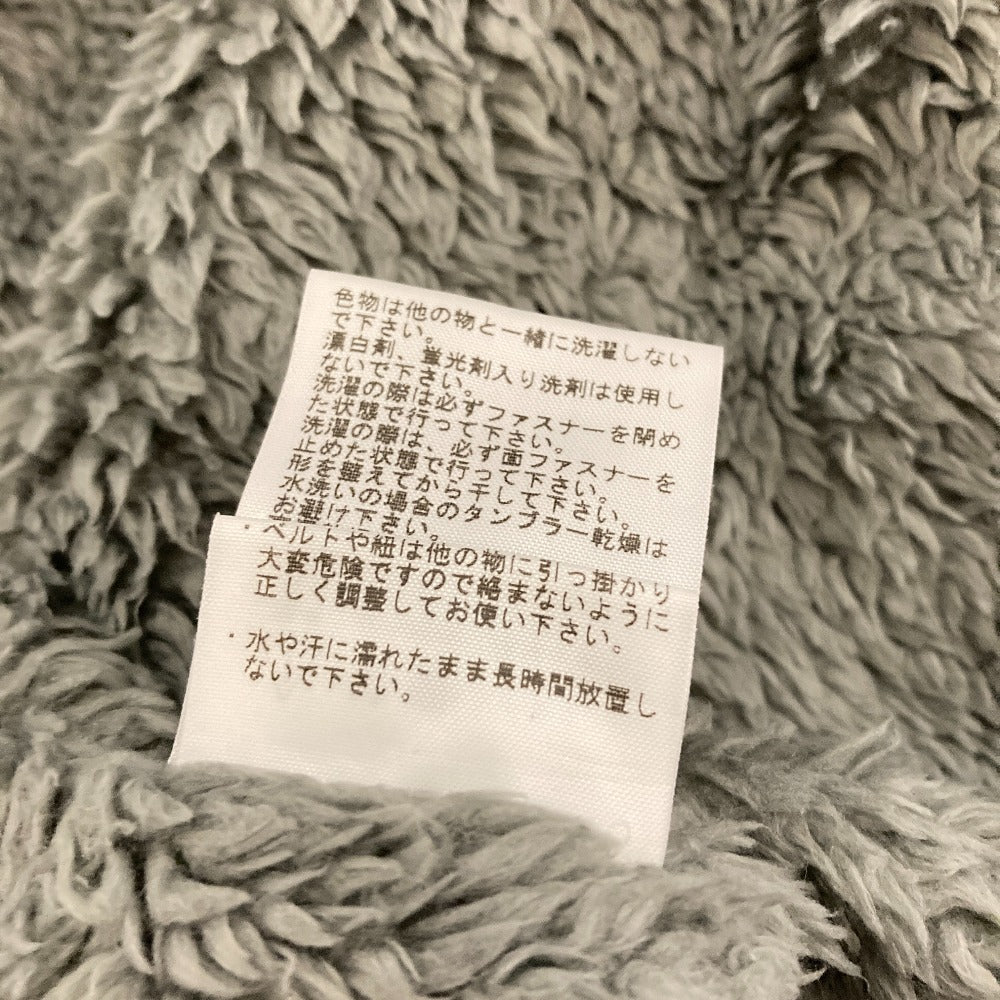 色物は他の物と一緒に洗濯しない
で下さい。
漂白剤、蛍光剤入り洗剤は使用し
ないで下さい。
洗濯の際は必ずファスナーを閉め
た状態で行って下さい。
洗濯の際は、必ず面ファスナーを
止めた状態で行って下さい。
形を整えてから干して下さい。
水洗いの場合のタンブラー乾燥は
お避け下さい。
・ベルトや紐は他の物に引っ掛かり
大変危険ですので絡まないように
正しく調整してお使い下さい。
・水や汗に濡れたまま長時間放置し
ないで下さい。